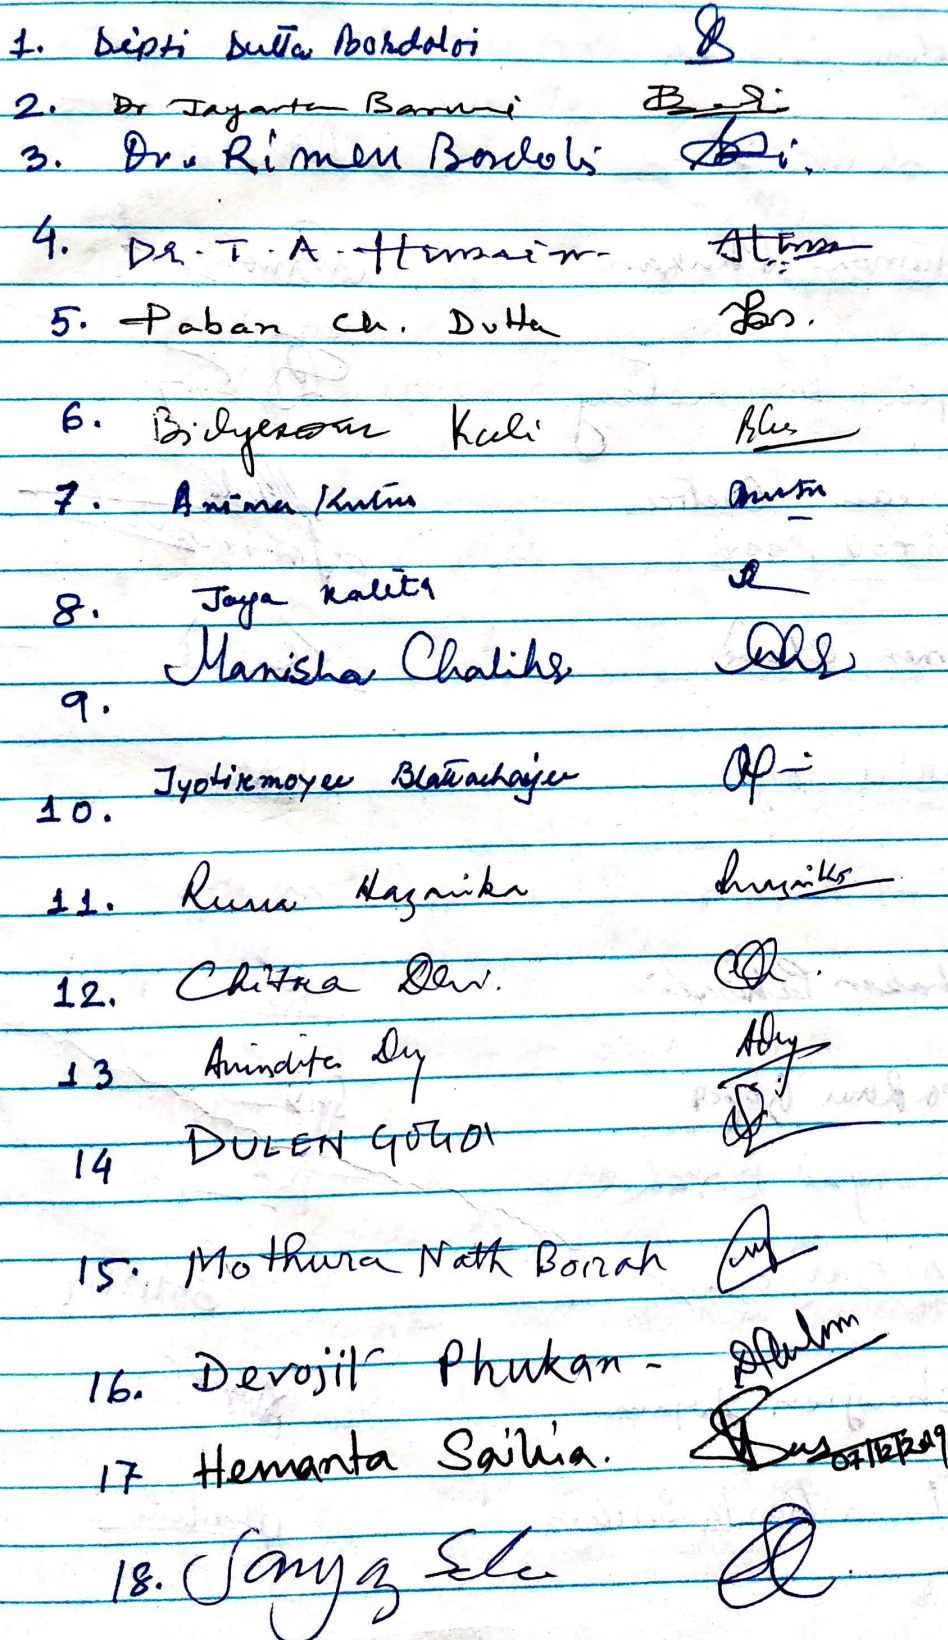 1. Dipti Dutta Bordoloi
2. Dr Jayanta Barua
3. Dr. Rimen Bordoloi
4. Dr. T. A. Hussain
5. Paban Ch. Dutta
6. Kali
7. Anima Kutum
8. Jaya Kalita
Manisha Chaliha
9.
Jyotirmoyee Bhattacharjee
10.
11. Runa Hazarika
12. Chitra Devi.
13 Anindita Dey ADey
14 DULEN GOGOI
15. Mothura Nath Borah
16. Devojit Phukan -
17 Hemanta Saikia. 07/12/2019
18.